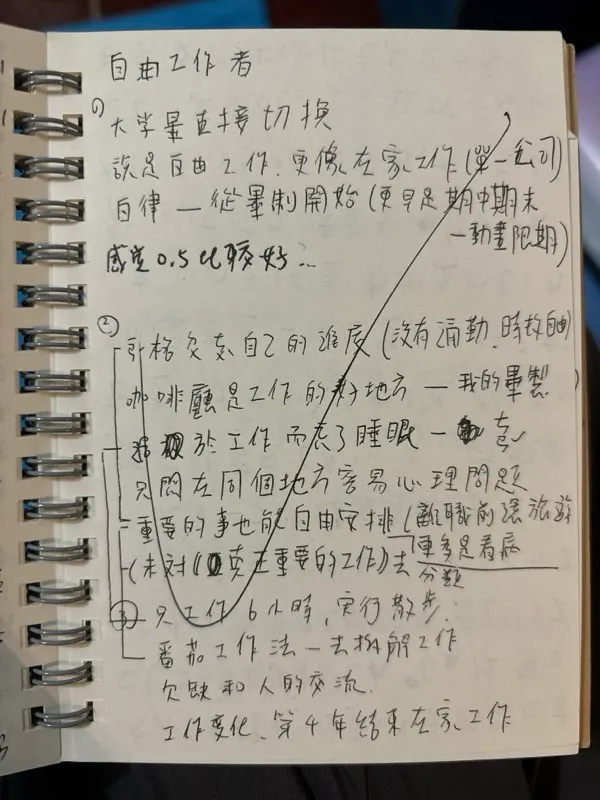 自由工作者
① 大学畢直接切換
說是自由工作、更像在家工作(單一公司)
自律 — 從畢制開始(更早是期中期末
一動畫限期)
感覺0.5比較好
② 自己的進度(沒有通勤、時枚自由)
咖啡廳是工作的好地方 — 我的畢製
於工作而忘了睡眠 —
只悶在同個地方容易心理問題
重要的事也能自由安排(離職前還旅遊
更多是看病
(未対(真正重要的工作)去
分類
③ 只工作6小時,実行散步.
番茄工作法 — 去拆解工作
欠缺和人的交流.
工作变化、第4年結束在家工作